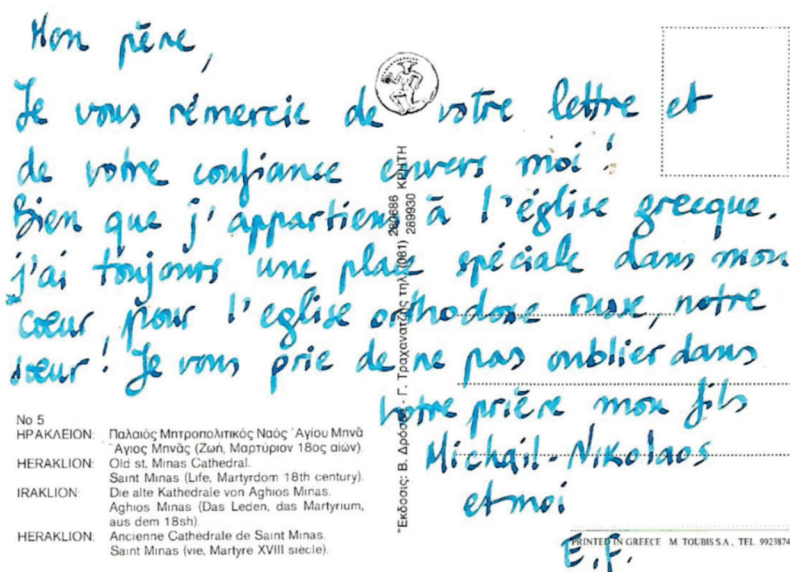 Mon père,
Je vous rémercie de votre lettre et
de votre confiance envers moi!
Bien que j'appartiens à l'église grecque,
j'ai toujours une place spéciale dans mon
coeur, pour l'eglise orthodoxe russe, notre
soeur! Je vous prie de ne pas oublier dans
votre prière mon fils
Michail-Nikolaos
et moi
E.F.
No 5
ΗΡΑΚΛΕΙΟΝ: Παλαιός Μητροπολιτικός Ναός Ἁγίου Μηνᾶ
Ἅγιος Μηνᾶς (Ζωή, Μαρτύριον 18ος αἰών).
HERAKLION: Old st. Minas Cathedral.
Saint Minas (Life, Martyrdom 18th century).
IRAKLION: Die alte Kathedrale von Aghios Minas.
Aghios Minas (Das Leden, das Martyrium,
aus dem 18sh).
HERAKLION: Ancienne Cathédrale de Saint Minas.
Saint Minas (vie, Martyre XVIII siècle).
Ἔκδοσις: Β. Δρόσος - Γ. Τραχανατζῆς τηλ. (081)
289930 ΚΡΗΤΗ
PRINTED IN GREECE M. TOUBIS S.A., TEL. 9923874